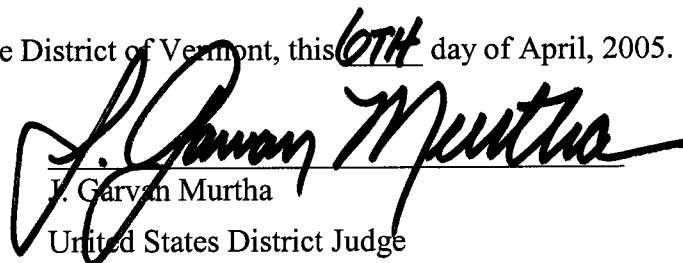 e District of Vermont, this 6TH day of April, 2005.
J. Garvan Murtha
J. Garvan Murtha
United States District Judge